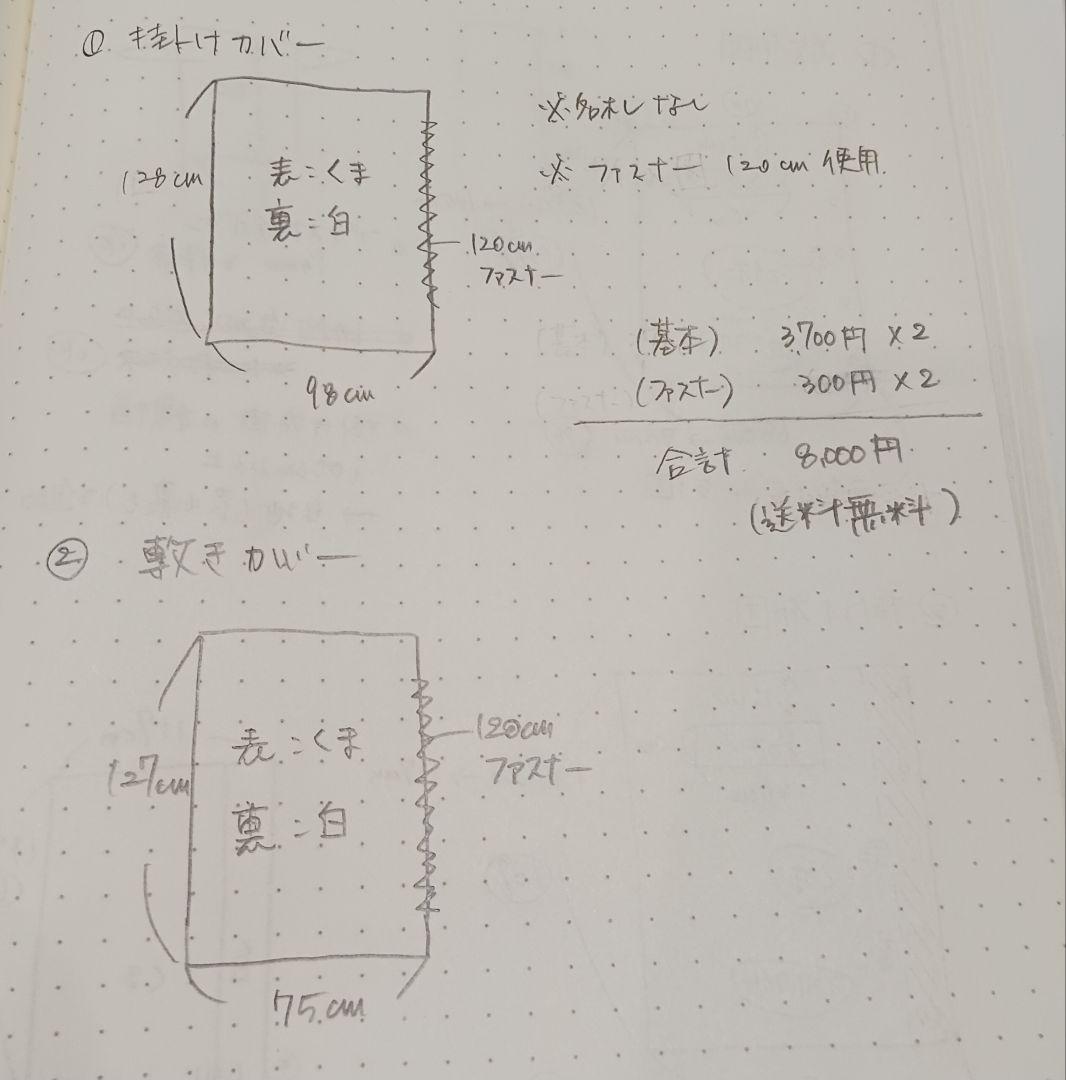 ① 掛けカバー
※名札なし
※ファスナー 120cm 使用
128cm
表:くま
裏:白
120cm
ファスナー
98cm
(基本) 3,700円×2
(ファスナー) 300円×2
合計 8,000円
(送料無料)
② 敷きカバー
127cm
表:くま
裏:白
120cm
ファスナー
75cm